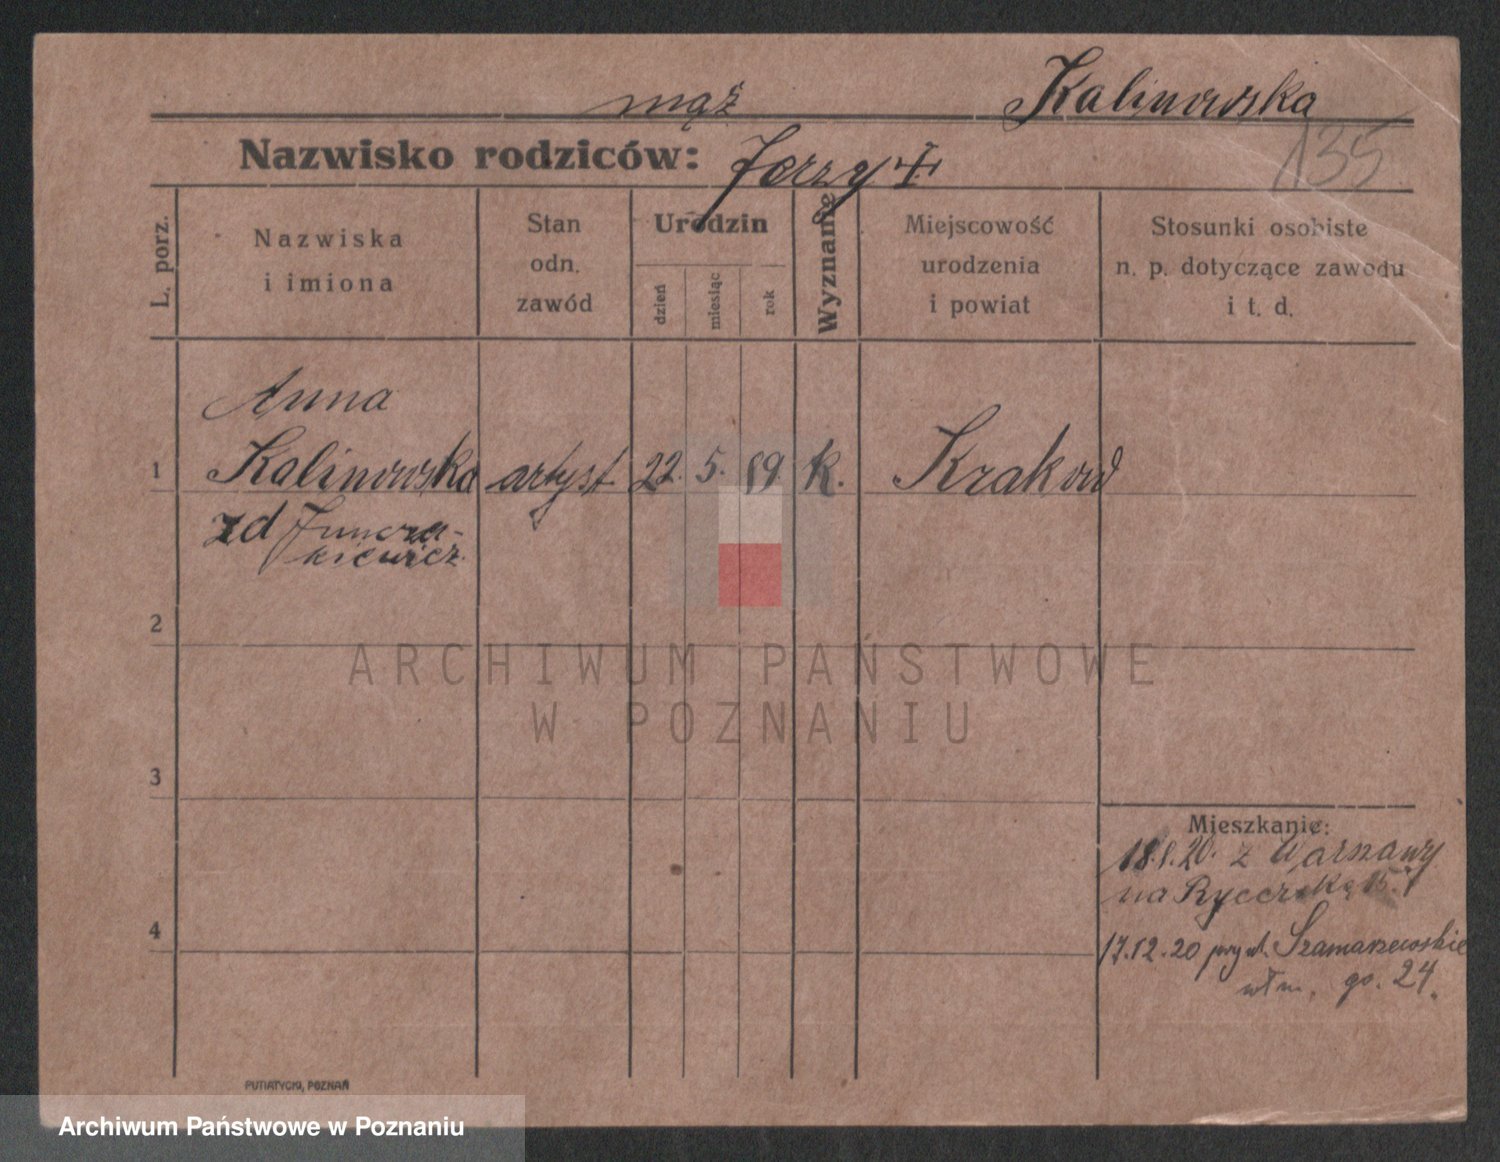 mąż Kalinowska
Nazwisko rodziców: Jerzy
135
L. porz.
Nazwiska
i imiona
Stan
odn.
zawód
Urodzin
dzień
miesiąc
rok
Wyznanie
Miejscowość
urodzenia
i powiat
Stosunki osobiste
n. p. dotyczące zawodu
i t. d.
Anna
1 Kalinowska artyst. 22. 5. 89. k. Kraków
zd
kiewicz.
2
3
4
Mieszkanie:
18.1.20. z Warszawy
na Rycerską 15.
17.12.20 przy ul. Szamarzewskie
go. 24.
PUTIATYCKI, POZNAŃ
ARCHIWUM PAŃSTWOWE
W POZNANIU
Archiwum Państwowe w Poznaniu